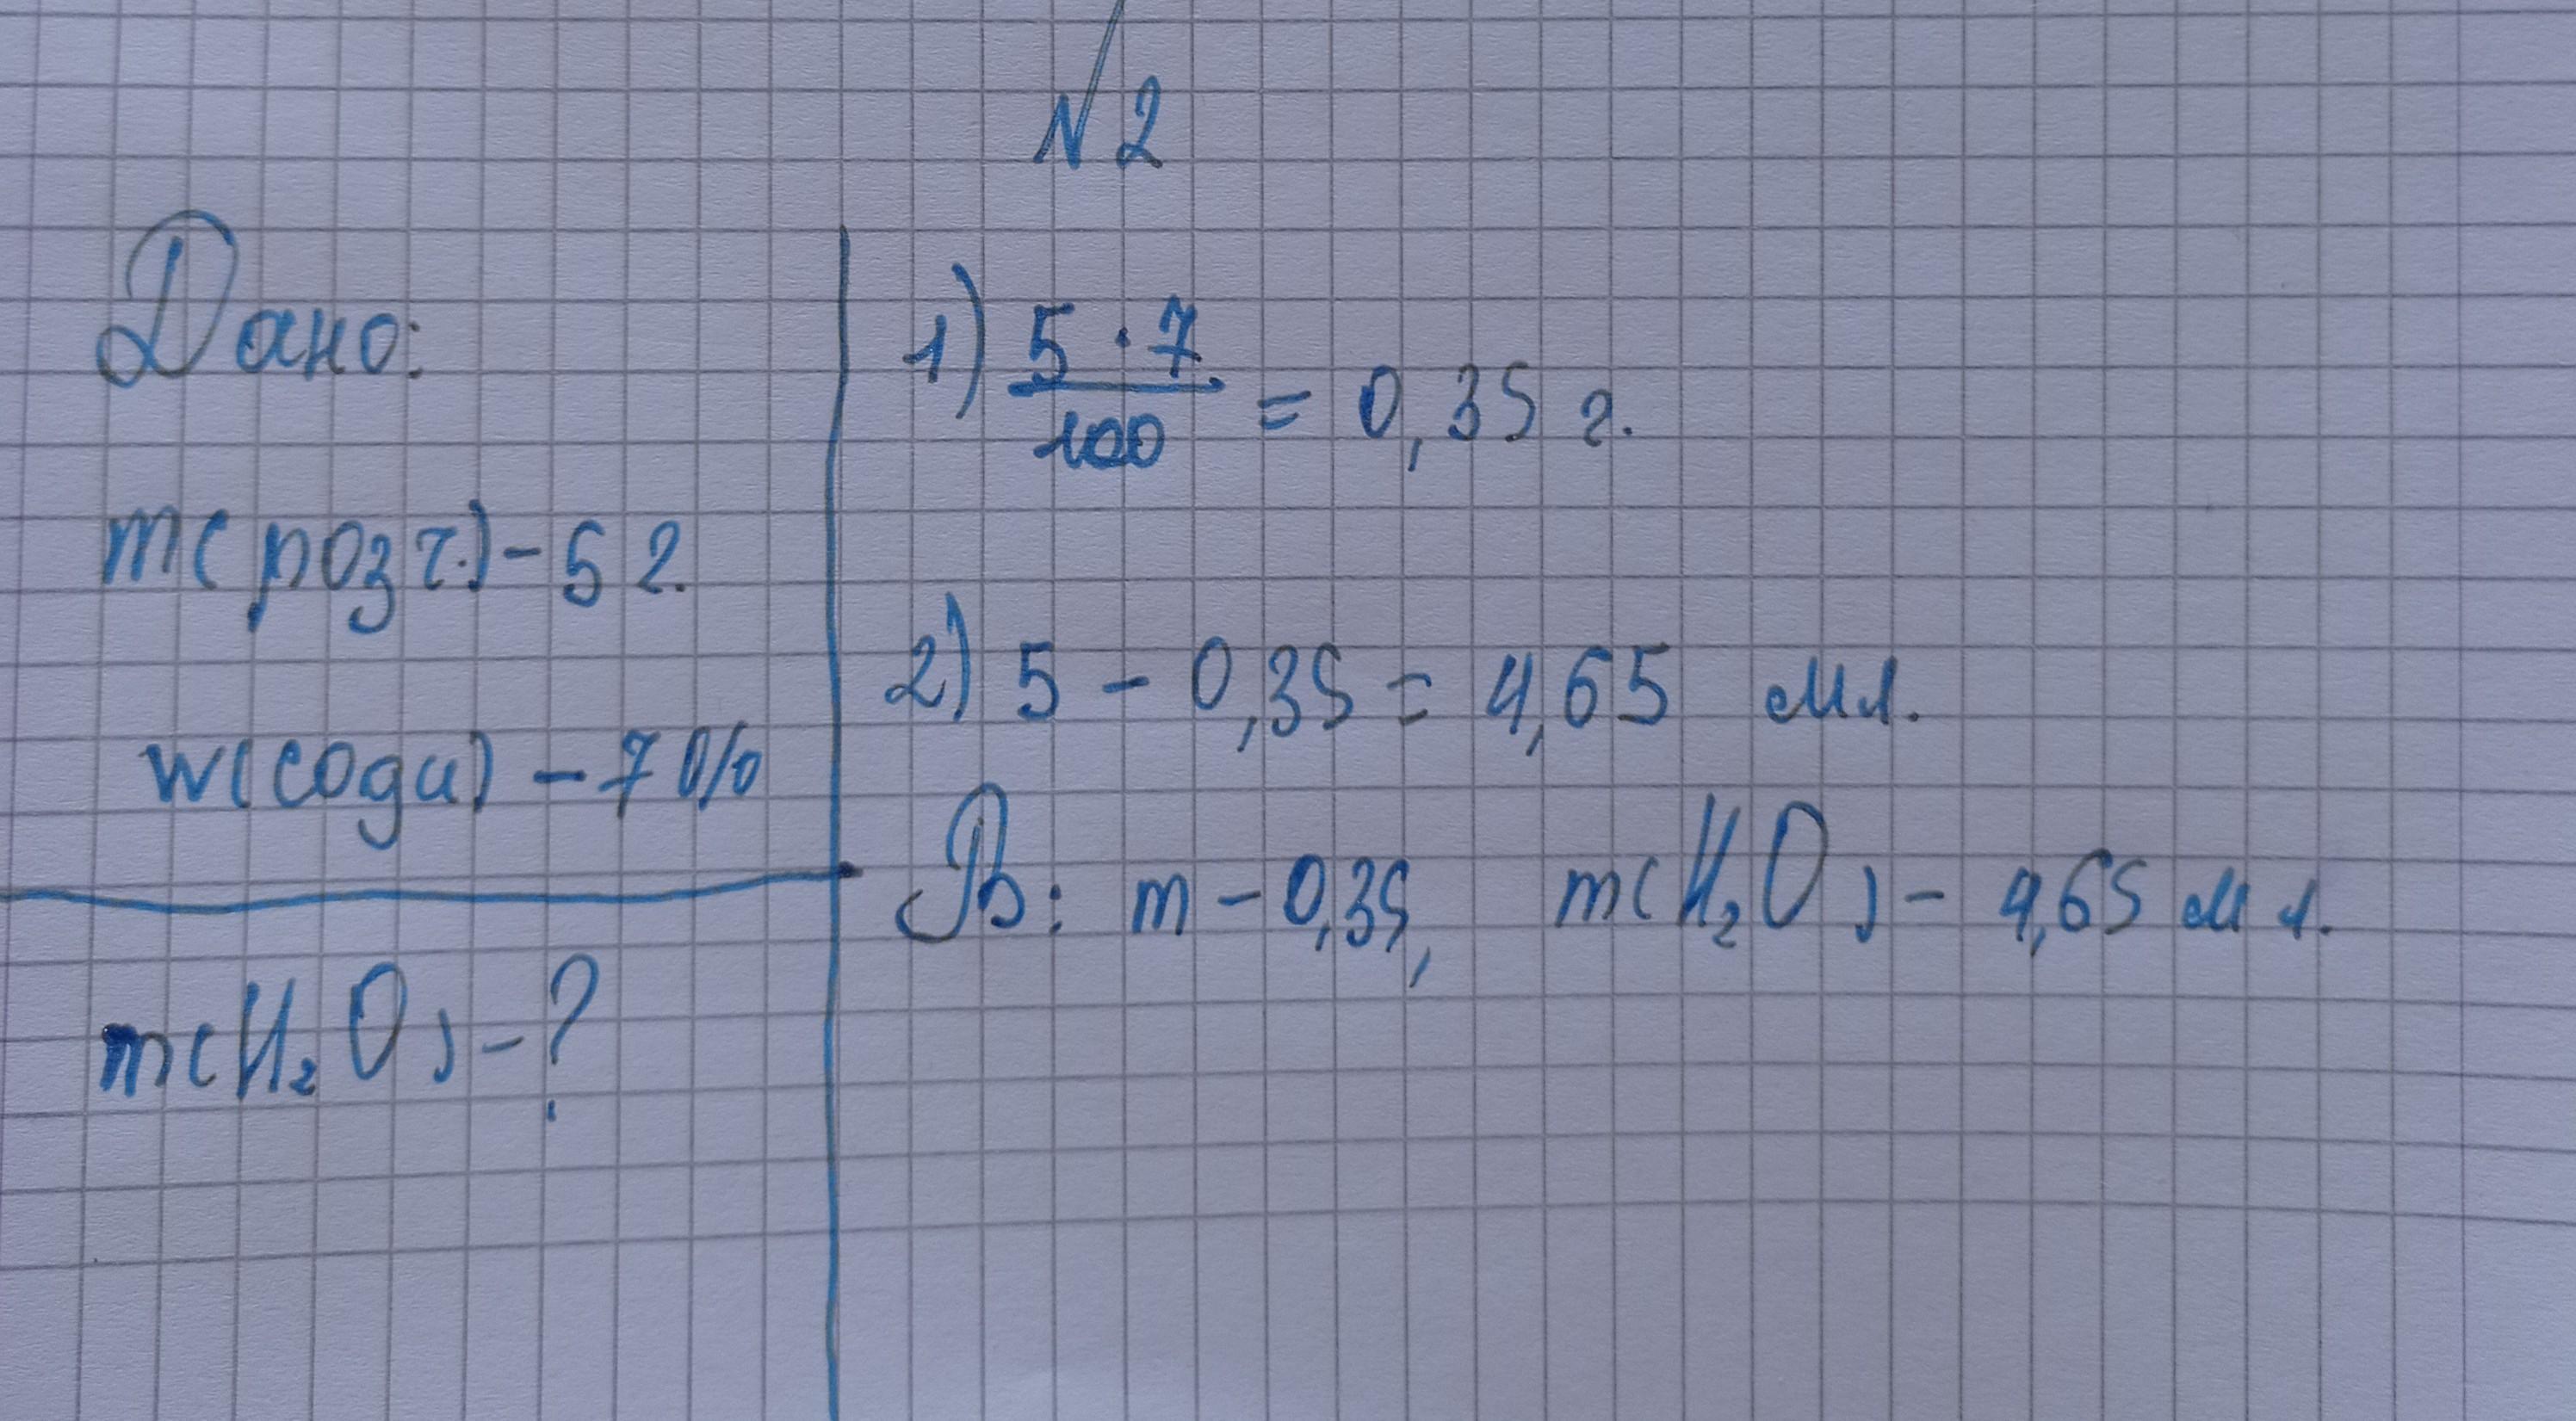 №2
Дано:
m(розч.) - 5 г.
w(соди) - 7%
m(H₂O) - ?
1) 5 · 7 / 100 = 0,35 г.
2) 5 - 0,35 = 4,65 мл.
В: m - 0,35, m(H₂O) - 4,65 мл.